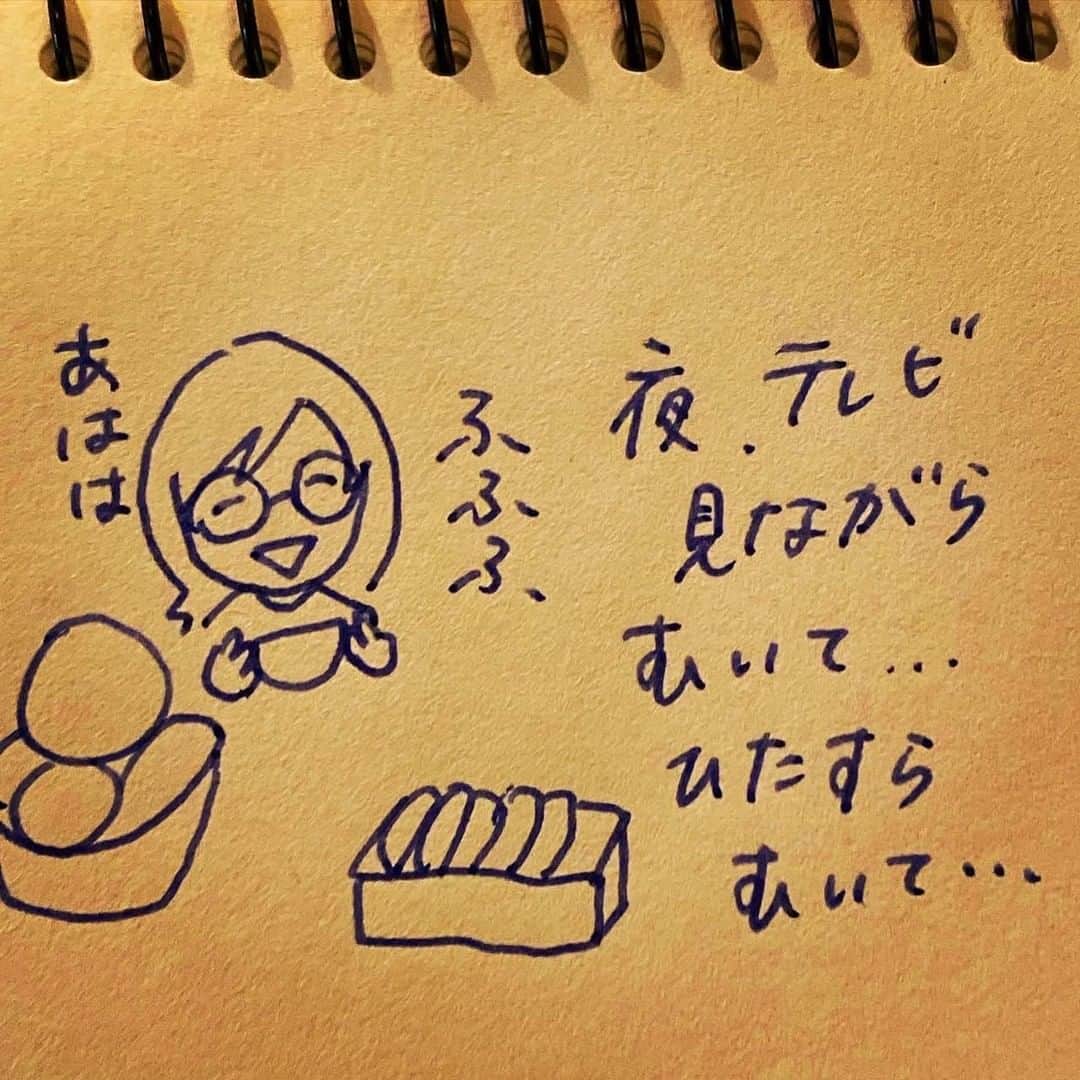 あはは
ふふふ
夜、テレビ
見ながら
むいて…
ひたすら
むいて…